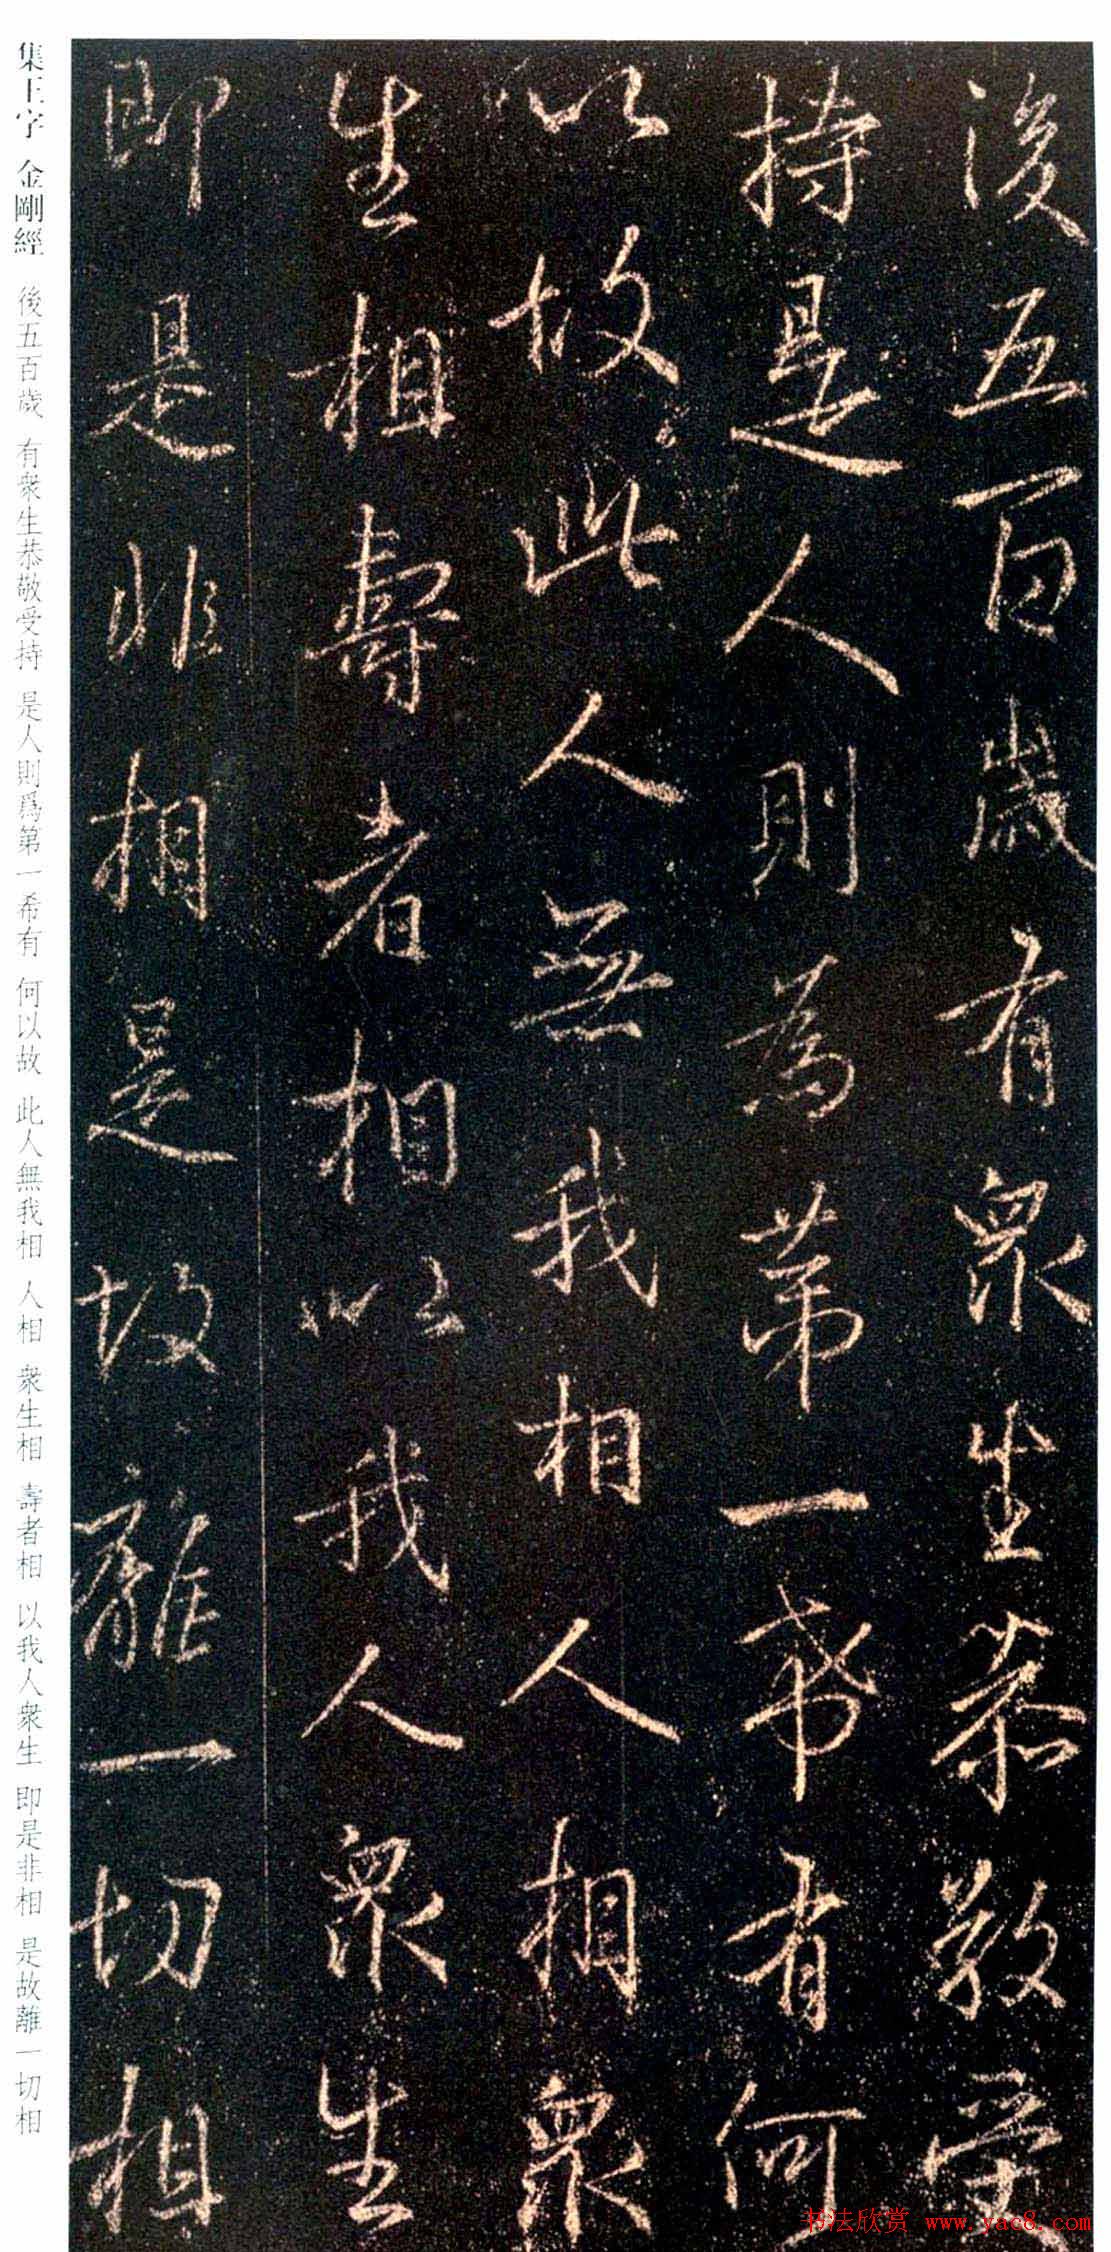 後五百歲有衆生恭敬受
持是人則為第一希有何
以故此人無我相人相衆
生相壽者相以我人衆生
即是非相是故離一切相
集王字 金剛經 後五百歲 有衆生恭敬受持 是人則爲第一希有 何以故 此人無我相 人相 衆生相 壽者相 以我人衆生 即是非相 是故離一切相
书法欣赏 www.yac8.com